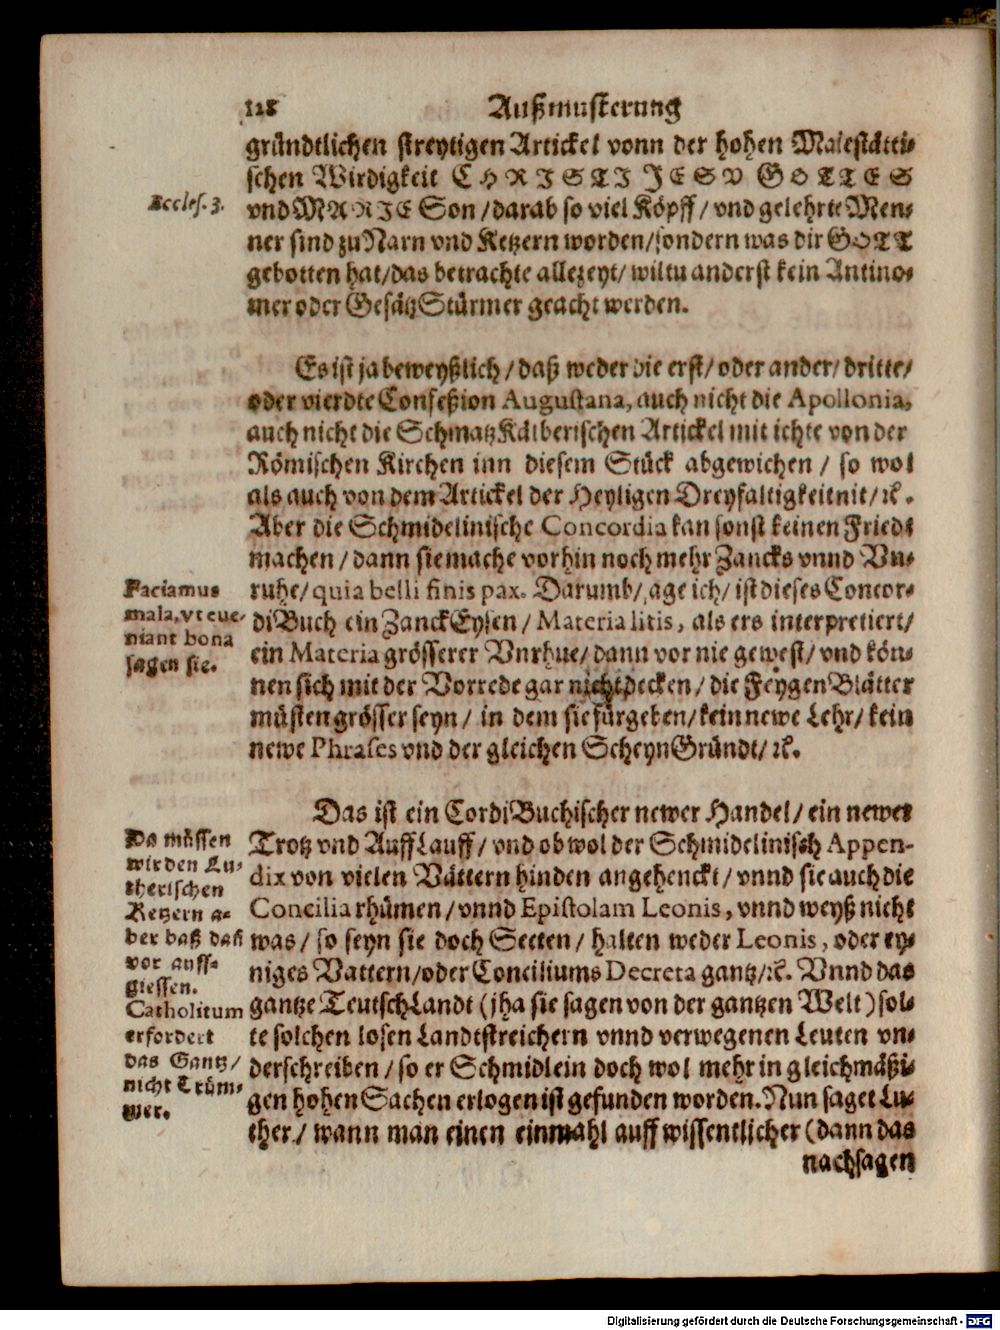 128 Außmusterung
gründtlichen streytigen Artickel vonn der hohen Maiestätti-
schen Wirdigkeit CHRISTI JESV GOTTES
Eccles. 3.
vnd MARIE Son / darab so viel Köpff / vnd gelehrte Men-
ner sind zu Narn vnd Ketzern worden / sondern was dir GOTT
gebotten hat / das betrachte allezeyt / wiltu anderst kein Antino-
mer oder GesätzStürmer geacht werden.
Es ist ja beweyßlich / daß weder die erst / oder ander / dritte /
oder vierdte Confeßion Augustana, auch nicht die Apollonia,
auch nicht die SchmatzKälberischen Artickel mit ichte von der
Römischen Kirchen inn diesem Stück abgewichen / so wol
als auch von dem Artickel der Heyligen Dreyfaltigkeit nit / ꝛc.
Aber die Schmidelinische Concordia kan sonst keinen Fried
machen / dann sie mache vorhin noch mehr Zancks vnnd Vn-
ruhe / quia belli finis pax. Darumb / sage ich / ist dieses Concor-
diBuch ein ZanckEysen / Materia litis, als ers interpretiert /
ein Materia grösserer Vnrhue / dann vor nie gewest / vnd kön-
nen sich mit der Vorrede gar nicht decken / die FeygenBlätter
müsten grösser seyn / in dem sie fürgeben / kein newe Lehr / kein
newe Phrases vnd der gleichen ScheynGründt / ꝛc.
Faciamus
mala, vt eue-
niant bona
sagen sie.
Das ist ein CordiBuchischer newer Handel / ein newer
Trotz vnd AuffLauff / vnd ob wol der Schmidelinisch Appen-
dix von vielen Vättern hinden angehenckt / vnnd sie auch die
Concilia rhümen / vnnd Epistolam Leonis, vnnd weyß nicht
was / so seyn sie doch Secten / halten weder Leonis, oder ey-
niges Vattern / oder Conciliums Decreta gantz / ꝛc. Vnnd das
gantze TeutschLandt (jha sie sagen von der gantzen Welt) sol-
te solchen losen Landtstreichern vnnd verwegenen Leuten vn-
derschreiben / so er Schmidlein doch wol mehr in gleichmäßi-
gen hohen Sachen erlogen ist gefunden worden. Nun saget Lu-
ther / wann man einen einmahl auff wissentlicher (dann das
nachsagen
Da müssen
wir den Lu-
therischen
Ketzern a-
ber daß daß
vor auff-
giessen.
Catholitum
erfordert
das Gantz /
nicht Trüm-
mer.
Digitalisierung gefördert durch die Deutsche Forschungsgemeinschaft - DFG